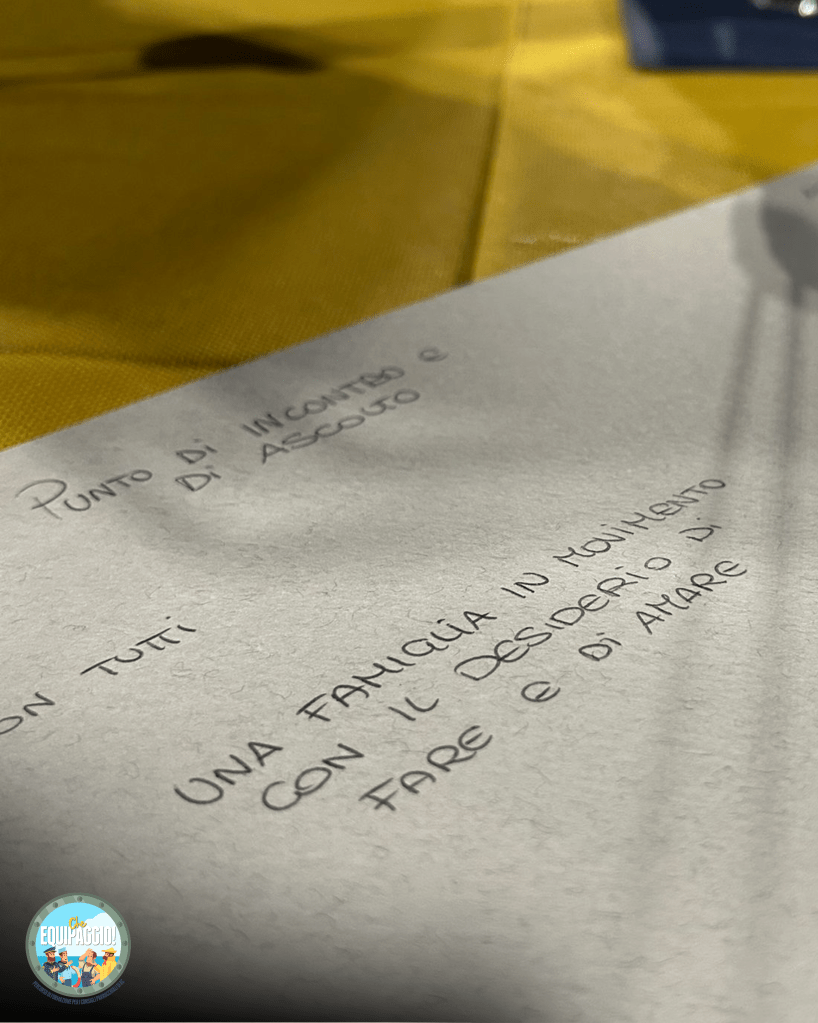 PUNTO Di INCONTRO E
Di ASCOLTO
ON TUTTi
UNA FAMIGLIA IN MOVIMENTO
CON IL DESIDERIO Di
FARE E Di AMARE
Che
EQUIPAGGIO!